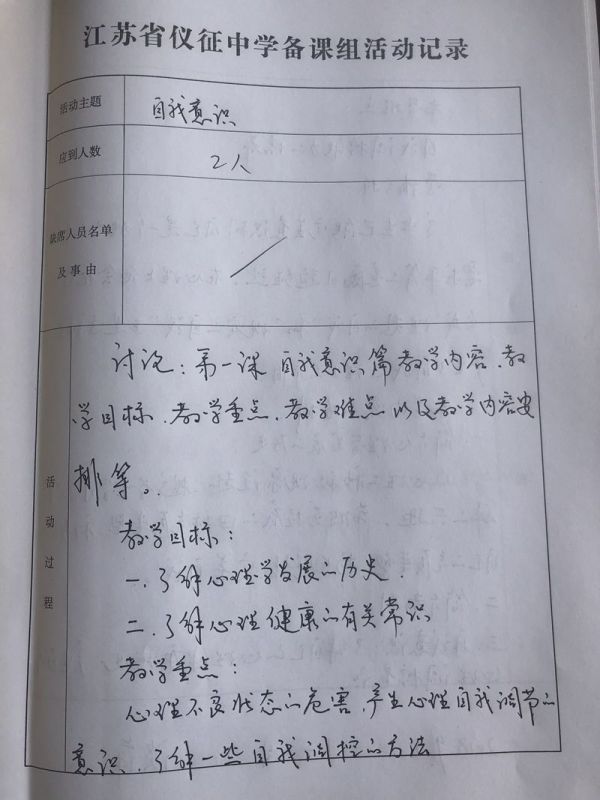 江苏省仪征中学备课组活动记录
活动主题 自我意识
应到人数 2人
缺席人员名单
及事由
活动过程
讨论：第一课 自我意识篇教学内容、教
学目标、教学重点、教学难点以及教学内容安
排等。
教学目标：
一、了解心理学发展的历史.
二、了解心理健康的有关常识
教学重点：
心理不良状态的危害,产生心理自我调节的
意识,了解一些自我调控的方法